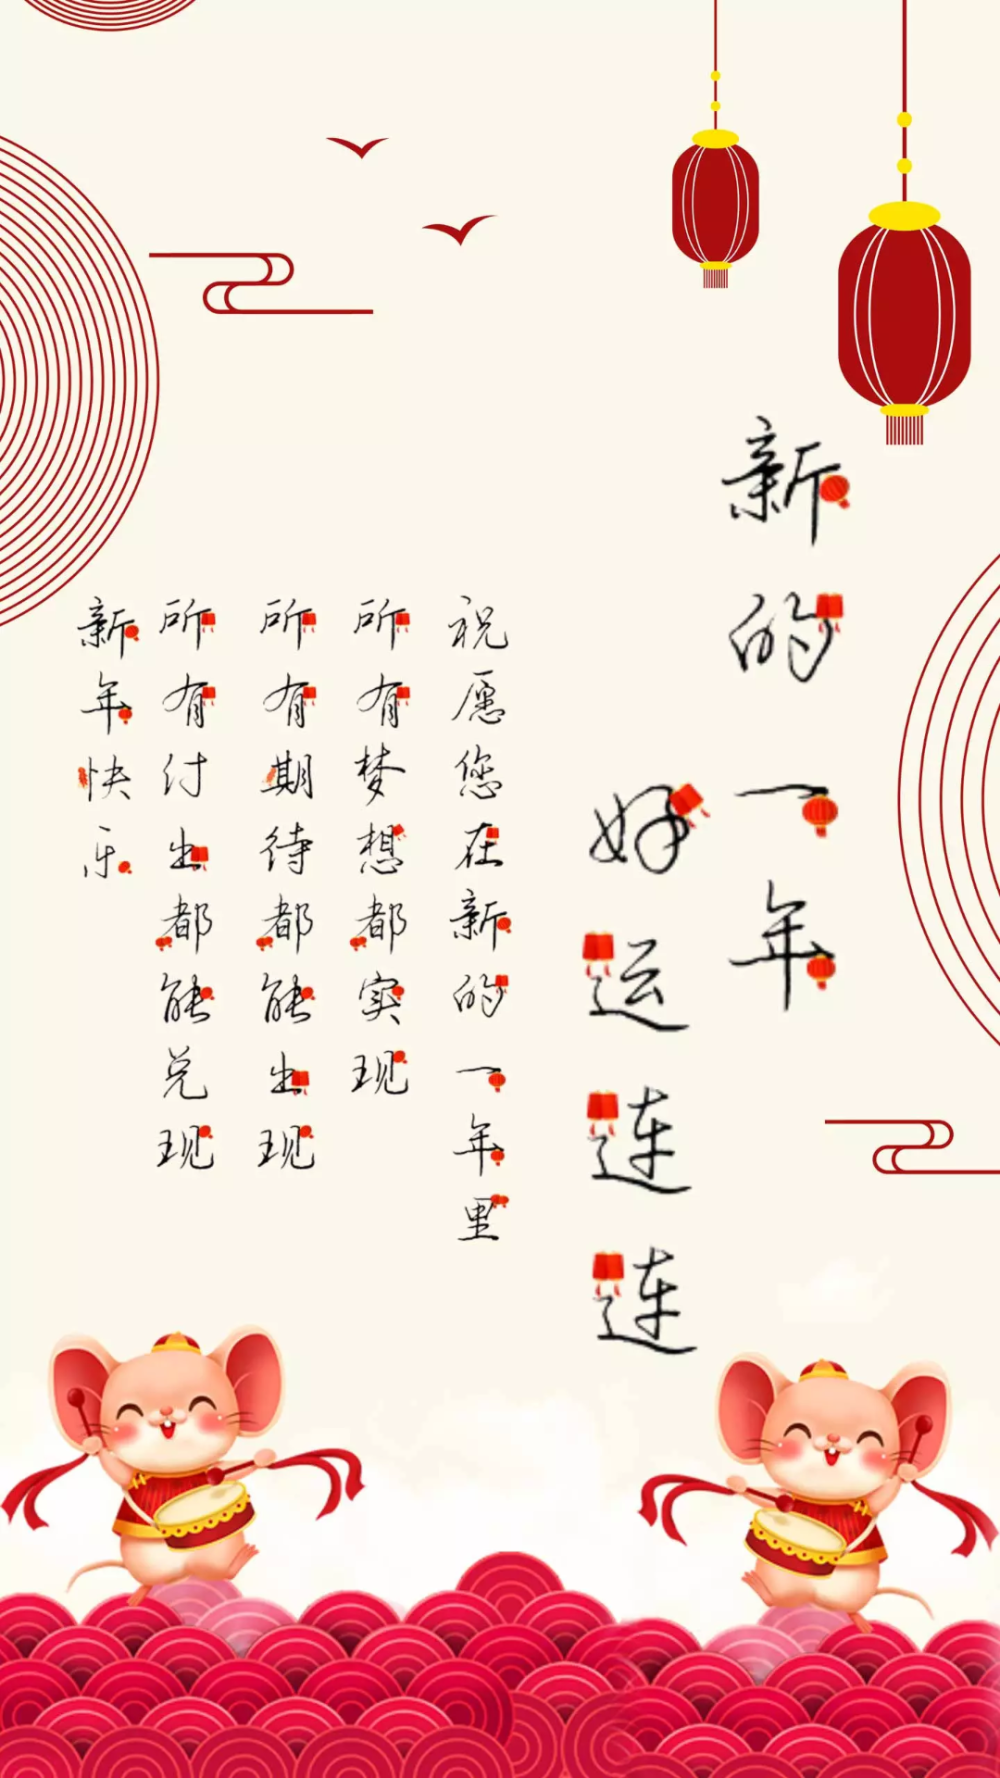 新的一年
好运连连
祝愿您在新的一年里
所有梦想都实现
所有期待都能出现
所有付出都能兑现
新年快乐